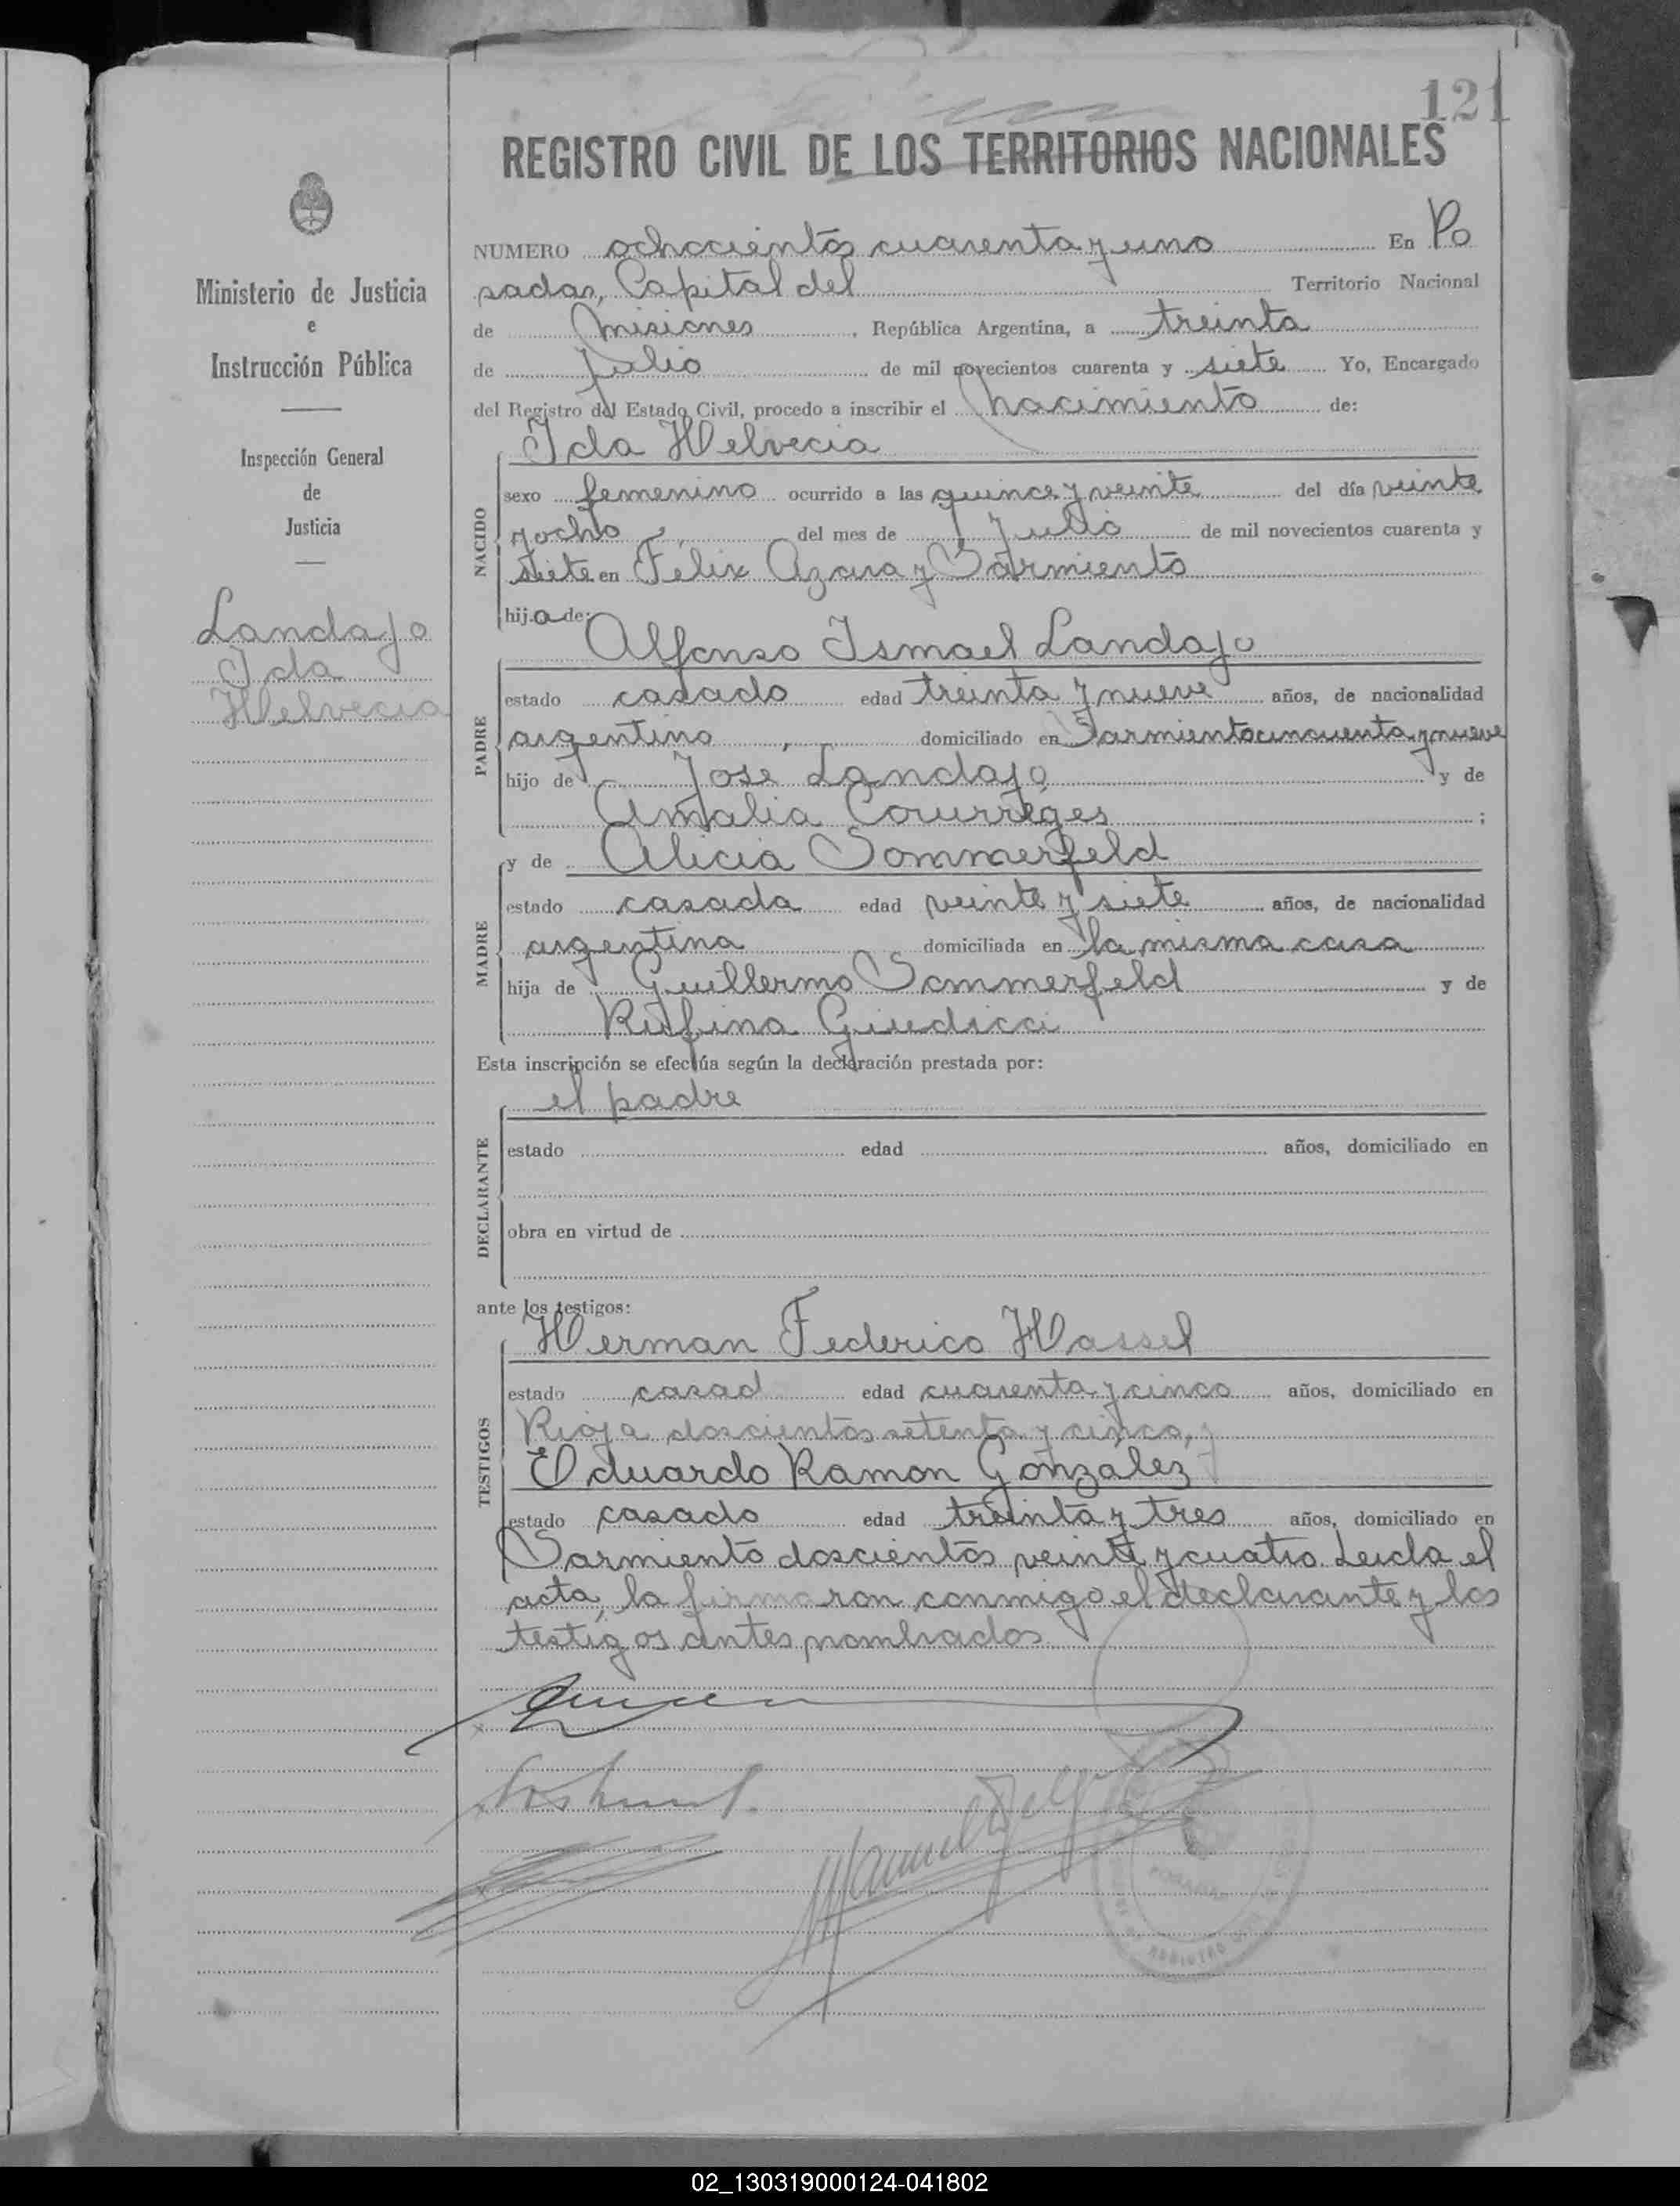 121
REGISTRO CIVIL DE LOS TERRITORIOS NACIONALES
Ministerio de Justicia
e
Instrucción Pública
Inspección General
de
Justicia
Landajo
Ida
Helvecia
NUMERO ochocientos cuarenta y uno En Po
sadas, Capital del Territorio Nacional
de Misiones, República Argentina, a treinta
de Julio de mil novecientos cuarenta y siete Yo, Encargado
del Registro del Estado Civil, procedo a inscribir el nacimiento de:
NACIDO
Ida Helvecia
sexo femenino ocurrido a las quince y veinte del día veinte
y ocho del mes de Julio de mil novecientos cuarenta y
siete en Félix Azara y Sarmiento
hija de:
PADRE
Alfonso Ismael Landajo
estado casado edad treinta y nueve años, de nacionalidad
argentino, domiciliado en Sarmiento cincuenta y nueve
hijo de José Landajo y de
Amalia Courreges ;
MADRE
y de Alicia Sommerfeld
estado casada edad veinte y siete años, de nacionalidad
argentina domiciliada en la misma casa
hija de Guillermo Sommerfeld y de
Rufina Giudicci
Esta inscripción se efectúa según la declaración prestada por:
DECLARANTE
el padre
estado edad años, domiciliado en
obra en virtud de
ante los testigos:
TESTIGOS
Herman Federico Hassel
estado casad edad cuarenta y cinco años, domiciliado en
Rioja doscientos setenta y cinco, y
Eduardo Ramon Gonzalez
estado casado edad treinta y tres años, domiciliado en
Sarmiento doscientos veinte y cuatro. Leida el
acta, la firmaron conmigo el declarante y los
testigos antes nombrados
02_130319000124-041802